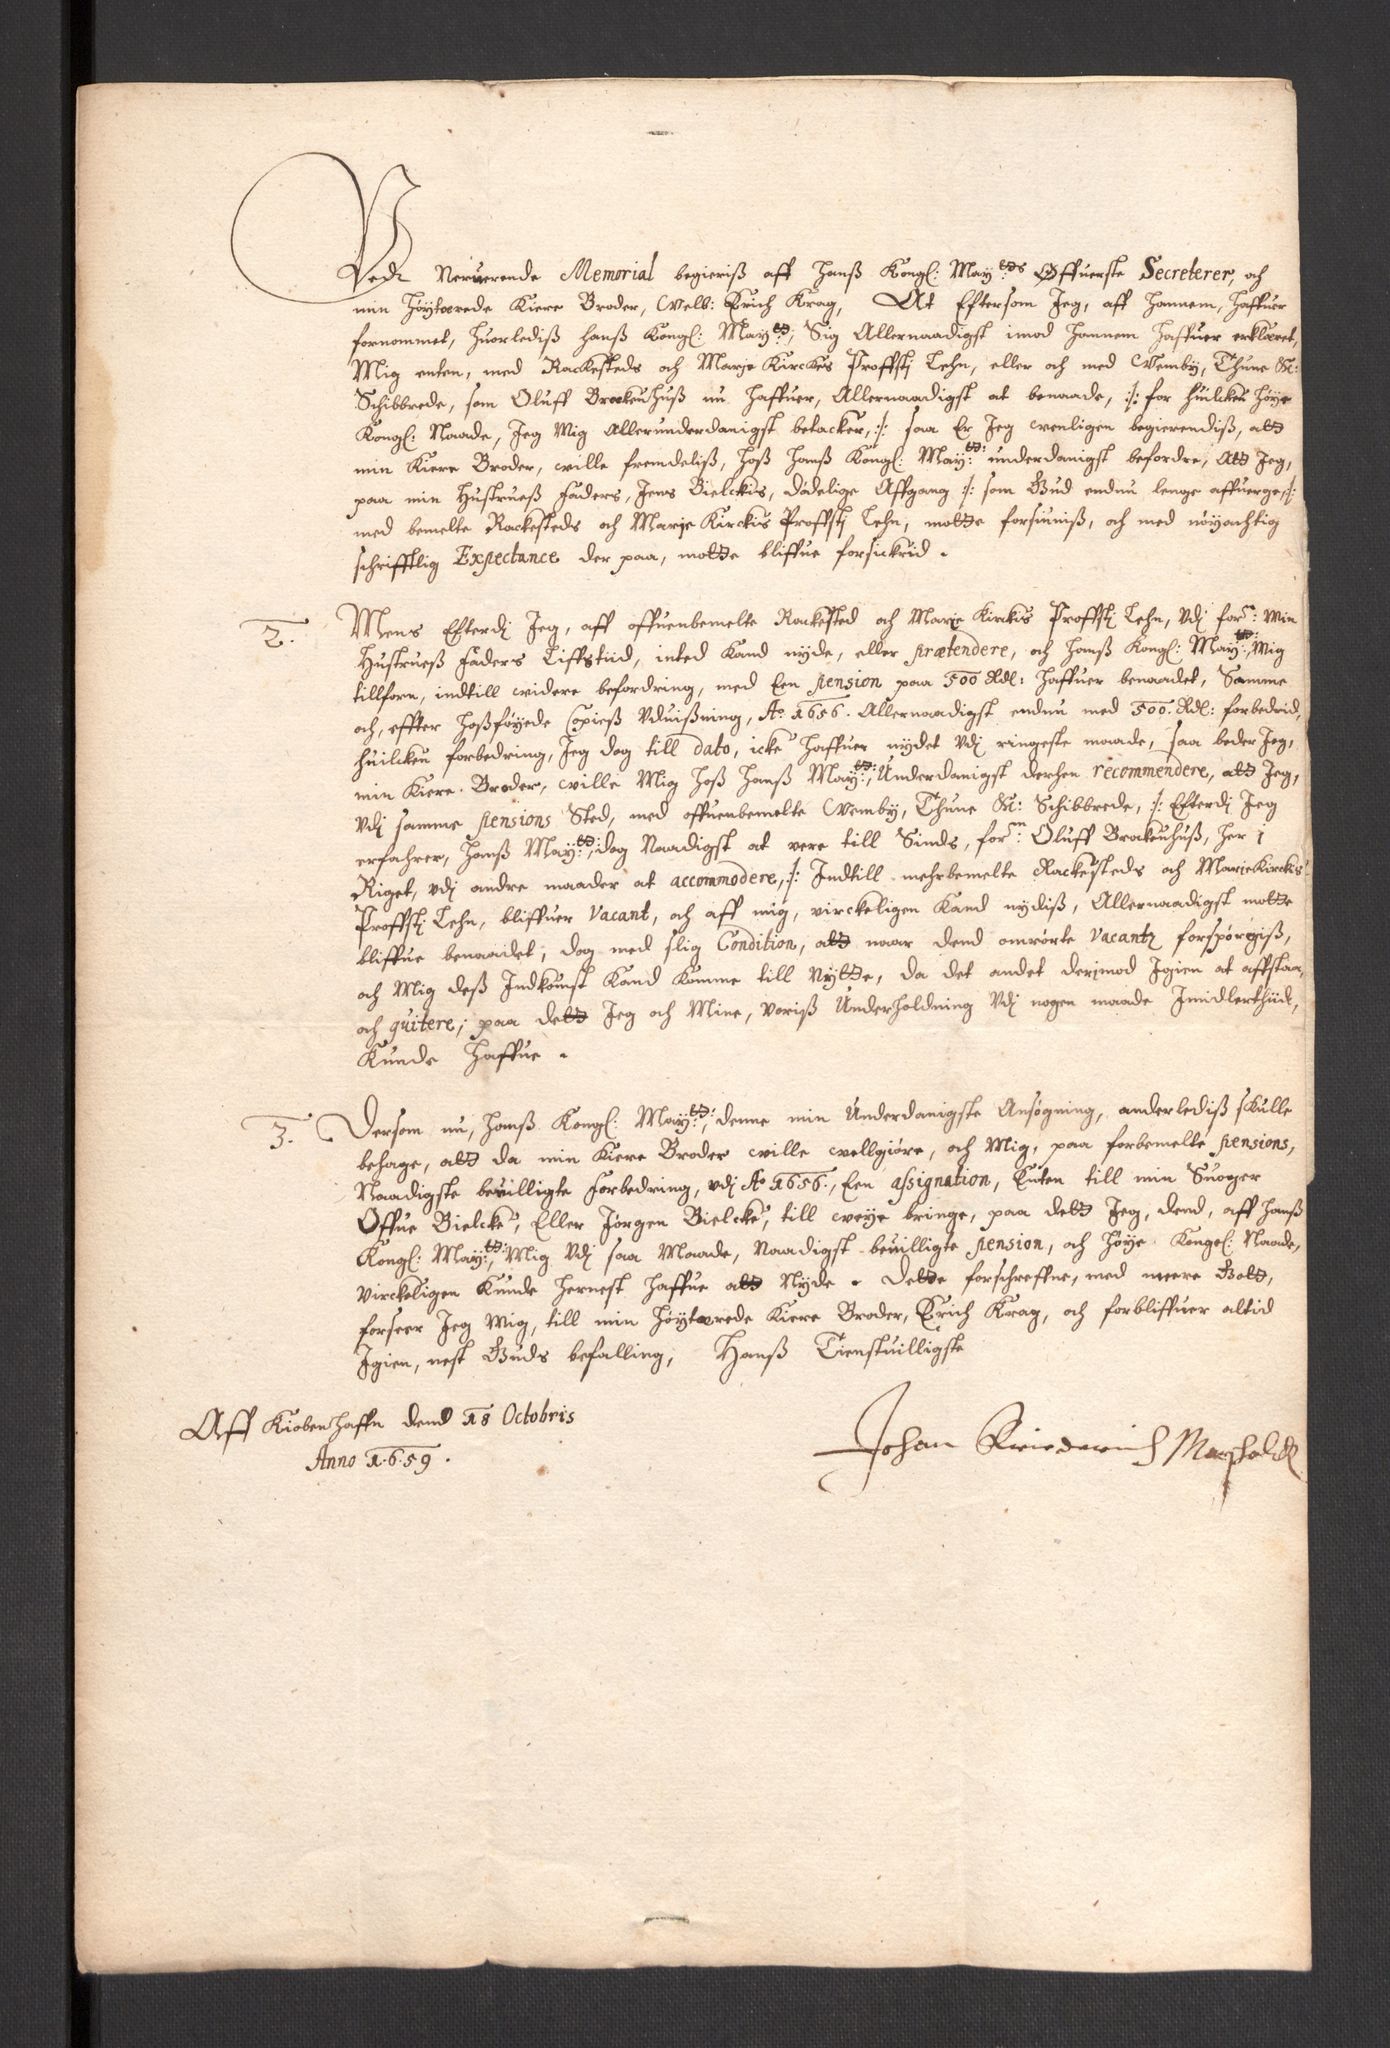 Ved Neruerende Memorial begieriß aff Hanß Kongl: May:ts Øffuerste Secreterer, och
min Høytærede Kiere Broder, Velb: Erich Krag, At Eftersom Jeg, aff Hannem, Haffuer
fornommet, huorlediß Hanß Kongl: May:tt, Sig Allernaadigst imod Hannem Haffuer erklæret,
Mig enten, med Rackesteds och Marje Kirckes Proffsti Lehn, eller och med Vemby, Thune &c:
Schibbrede, som Oluff Brockenhuß nu Haffuer, Allernaadigst at benaade, :/: for huilcken Høye
Kongl: Naade, Jeg Mig Allerunderdanigst betacker, :/: saa Er Jeg venligen begierendiß, att
min Kiere Broder, ville fremdeliß, Hoß Hanß Kongl: May:tt: underdanigst befordre, Att Jeg,
paa min Hustrueß Faders, Jens Bielckis, dødelige Affgang :/: som Gud endnu lenge affuerge :/:
med bemelte Rackesteds och Marje Kirckis Proffsti Lehn, motte forsiuniß, och med nøyachtig
schrifftlig Expectance der paa, motte bliffue forsickrid.
2. Mens Efterdi Jeg, aff offuenbemelte Rackested och Marje Kirckis Proffsti Lehn, Vdi for:ne Min
Hustrueß Faders Liffstiid, inted Kand nyde, eller prætendere, och Hanß Kongl: May:tt:, Mig
tillforn, indtill videre befordring, med Een pension paa 500 Rdl: Haffuer benaadet, Samme
och, effter Hoßføyede Copieß Vduißning, Ao 1656. Allernaadigst endnu med 500. Rdl: forbedrid,
huilcken forbedring, Jeg dog till dato, icke Haffuer nydet Vdi ringeste maade, saa beder Jeg,
min Kiere Broder, ville Mig Hoß Hanß May:tt:, Underdanigst derhen recommendere, att Jeg,
Vdi samme pensions Sted, med offuenbemelte Vemby, Thune &c: Schibbrede, :/: Efterdi Jeg
erfahrer, Hanß May:tt:, dog Naadigst at vere till Sinds, for:n Oluff Brockenhuß, Her i
Riget, vdi andre maader at accommodere, :/: Indtill mehrbemelte Rackesteds och Marje Kirckis
Proffsti Lehn, bliffuer Vacant, och aff mig, virckeligen Kand nydiß, Allernaadigst motte
bliffue benaadet, dog med slig Condition, att naar dend omrørte Vacantz forspørgiß,
och Mig deß Indkomst Kand Komme till Nytte, da det andet derimod Igien at affstaa,
och quitere; paa dett Jeg och Mine, Voriß Underholdning Vdi nogen maade Imidlerthiid,
Kunde Haffue.
3. Dersom nu, Hanß Kongl: May:tt:, denne min Underdanigste Ansøgning, anderlediß skulle
behage, att da min Kiere Broder ville vellgiøre, och Mig, paa forbemelte pensions,
Naadigste beuilligte Forbedring, vdi Ao 1656., Een assignation, Enten till min Suoger
Offue Bielcke, Eller Jørgen Bielcke, till veye bringe, paa dett Jeg, dend, aff Hanß
Kongl: May:tt:, Mig Vdi saa Maade, Naadigst beuilligte pension, och Høye Kongel: Naade,
virckeligen Kunde Hernest Haffue att Nyde. Dette forschreffne, med meere Gott,
forseer Jeg Mig, till min Høytærede Kiere Broder, Erich Krag, och forbliffuer altid
Igien, nest Guds befalling, Hanß Tienstuilligste
Aff Kiøbenhaffn dend 18 Octobris
Anno 1659.
Johan Friederich Marschalck